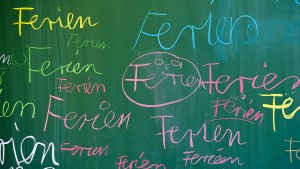 Ferien
Ferien
Ferien
Ferien
Ferien
Ferien
Ferien
Ferien
Ferien
Ferien
Ferien
Ferien
Ferien
Ferien
Ferien
Ferien